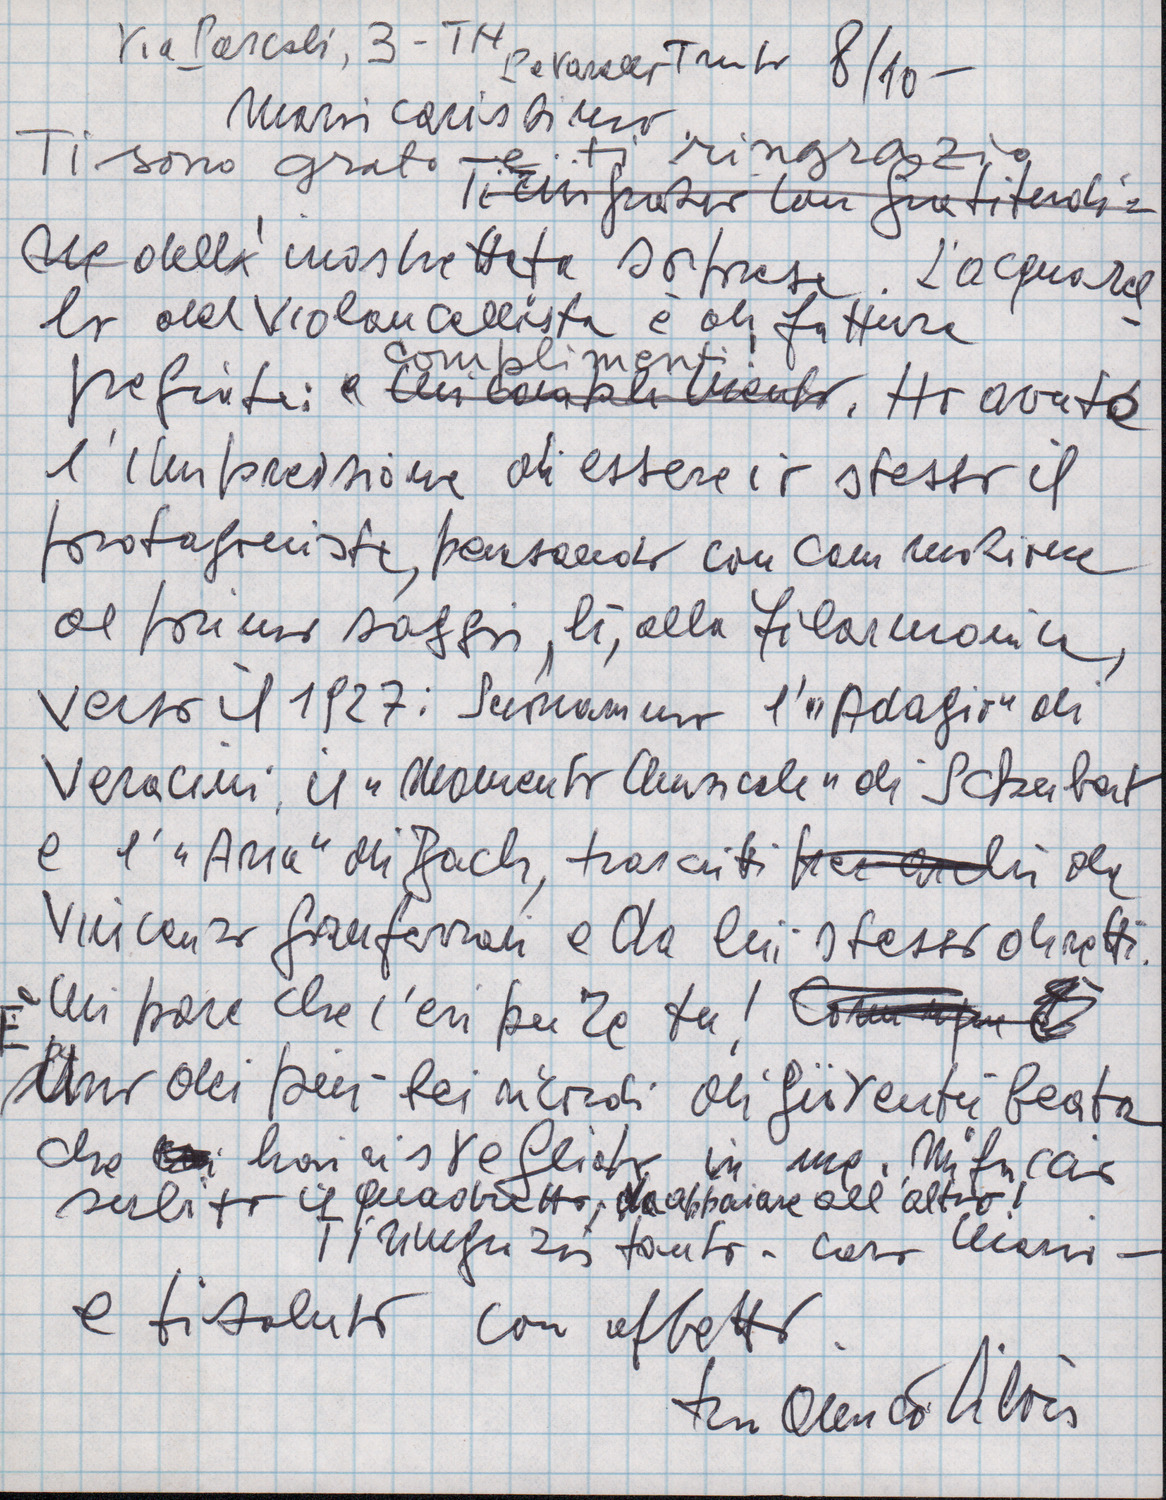 Via Pascoli, 3 - TN Trento 8/10-
Mario carissimo,
Ti sono grato e ti ringrazio
Ti ringrazio con gratitudi-
ne dell'inaspettata sorpresa. L'acquarel-
lo del Violoncellista è di fattura
complimenti!
pregiata: e . Ho avuto
l'impressione di essere io stesso il
protagonista, pensando con commozione
al primo saggio, lì, alla Filarmonica,
verso il 1927: Suonammo l'"Adagio" di
Veracini, il "Momento Musicale" di Schubert
e l'"Aria" di Bach, trascritti per archi da
Vincenzo Gianferrari e da lui stesso diretti.
Mi pare che c'eri pure tu! Comunque è
È
Uno dei più bei ricordi di gioventù beata
che hai risvegliato in me. Mi farai
subito il quadretto, da appaiare all'altro!
Ti ringrazio tanto - caro Mario -
e ti saluto con affetto.
tuo amico Silvio